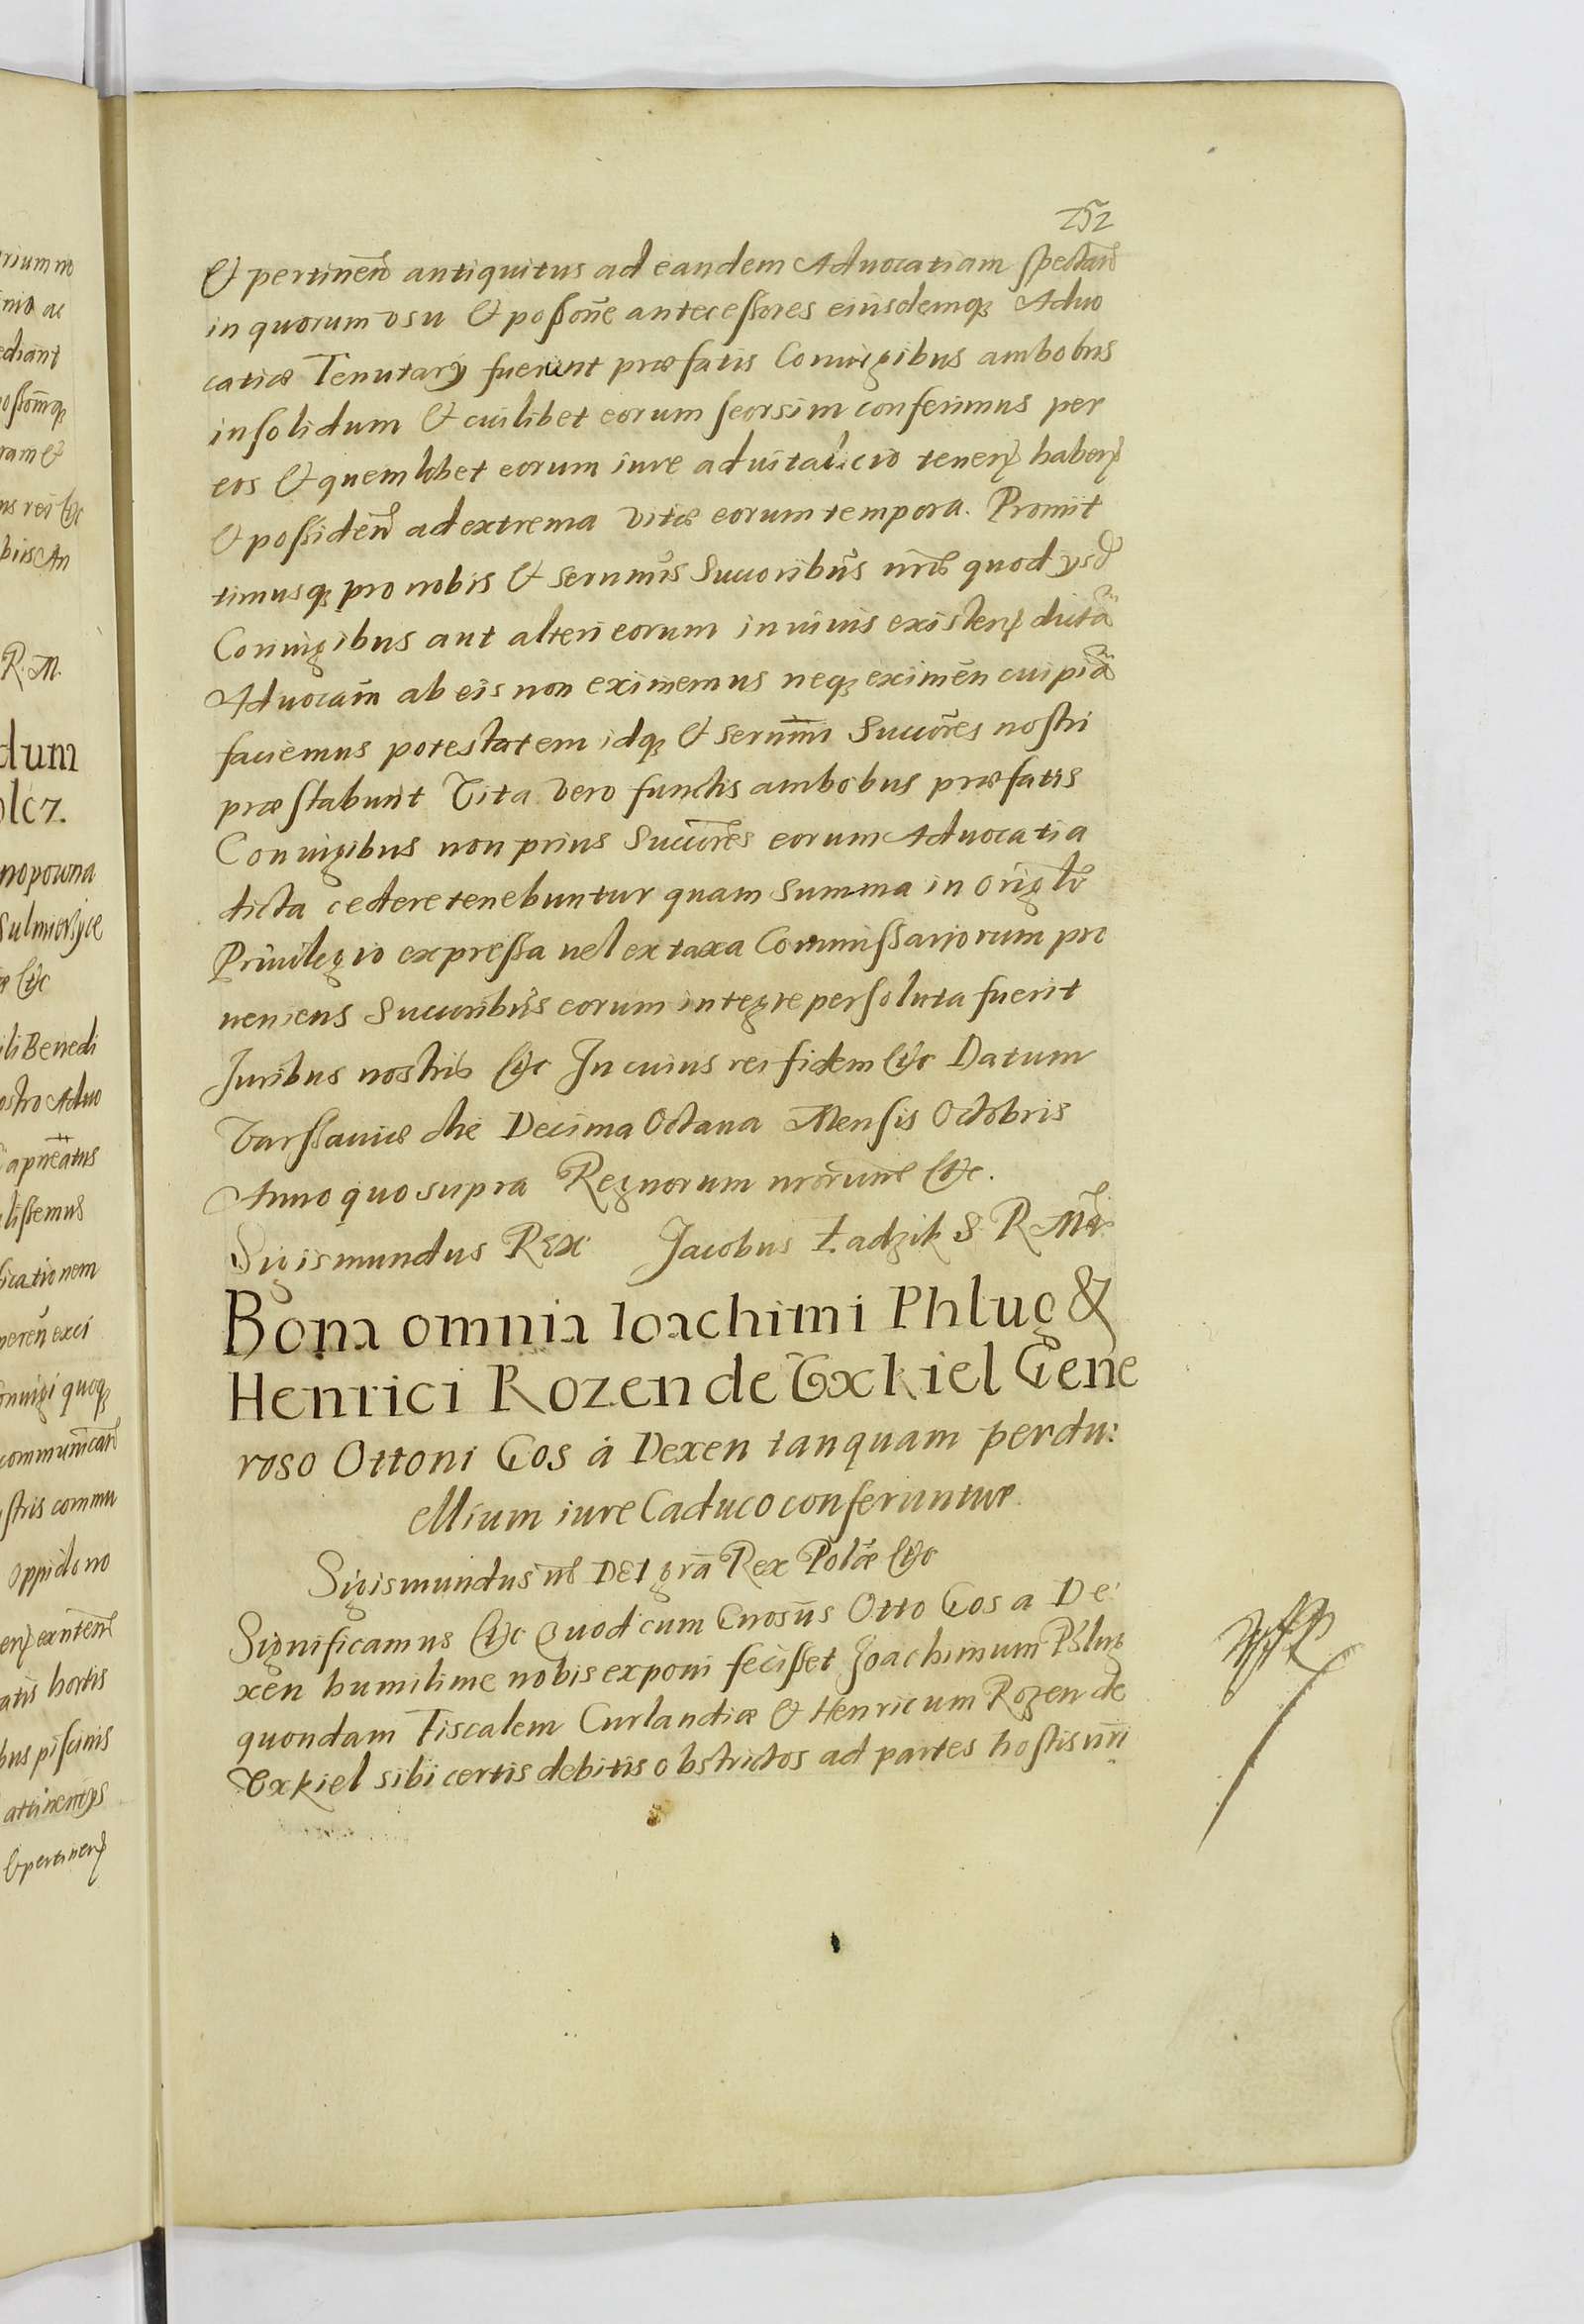 riumno
nia ac
ediant
ossomq
ram &
ns rei &c
biis An
R. M.
dum
olcz.
nopowna
Sulmierzyce
&c
ili Benedi
ostro Aduo
apneatus
listemus
licationem
neren exci
oniugi quoq
communican
stris commu
oppido no
atis hortis
bus piscinis
attinentijs
& pertinen
252
& pertinen̄ antiquitus ad eandem Aduocatiam spectan̄
in quorum vsu & posson̄e antecessores eiusdemq Aduo
catiæ Tenutarij fuerunt præfatis Coniugibus ambobus
insolidum & cuilibet eorum seorsim conferimus per
eos & quemlibet eorum iure aduitalicio tenen̄ haben̄
& possiden̄ ad extrema vitæ eorum tempora. Promit
timusq pro nobis & Sernmis Succoribus nris quod ysd
Coniugibus aut alteri eorum in viuis existen̄ dictā
Aduocam̄ ab eis non eximemus neq eximen̄ cuipiā
faciemus potestatem idq & sernmi Succores nostri
præstabunt Vita vero functis ambobus præfatis
Coniugibus non prius Succores eorum Aduocatia
dicta cedere tenebuntur quam summa in origli
Priuilegio expressa uel ex taxa Commissariorum pro
ueniens Succoribus eorum integre persoluta fuerit
Juribus nostris &c In cuius rei fidem &c Datum
Varssauiæ die Decima Octaua Mensis Octobris
Anno quo supra Regnorum nrorum &c.
Sigismundus Rex Jacobus Zadzik S. R. Mtis
Bona omnia Ioachimi Phlug &
Henrici Rozen de Vxkiel Gene
roso Ottoni Gos à Dexen tanquam perdu:
ellium iure Caduco conferuntur.
Sigismundus III DEI grā Rex Polæ &c
Significamus &c Quod cum Gnosus Otto Gos a De
xen humilime nobis exponi fecisset Joachimum Phlug
quondam Fiscalem Curlandiæ & Henricum Rozen de
Vxkiel sibi certis debitis obstrictos ad partes hostis nri